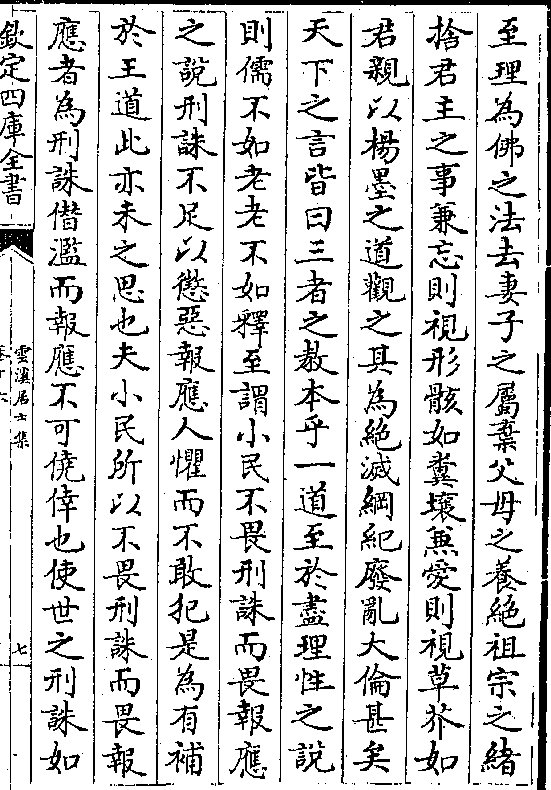 至理為佛之法去妻子之屬棄父母之養絶祖宗之緒
捨君主之事兼忘則視形骸如糞壤兼愛則視草芥如
君親以楊墨之道觀之其為絶滅綱紀廢亂大倫甚矣
天下之言皆曰三者之教本乎一道至於盡理性之說
則儒不如老老不如釋至謂小民不畏刑誅而畏報應
之說刑誅不足以懲惡報應人懼而不敢犯是為有補
於王道此亦未之思也夫小民所以不畏刑誅而畏報
應者為刑誅僭濫而報應不可僥倖也使世之刑誅如
欽定四庫全書
雲溪居士集
七